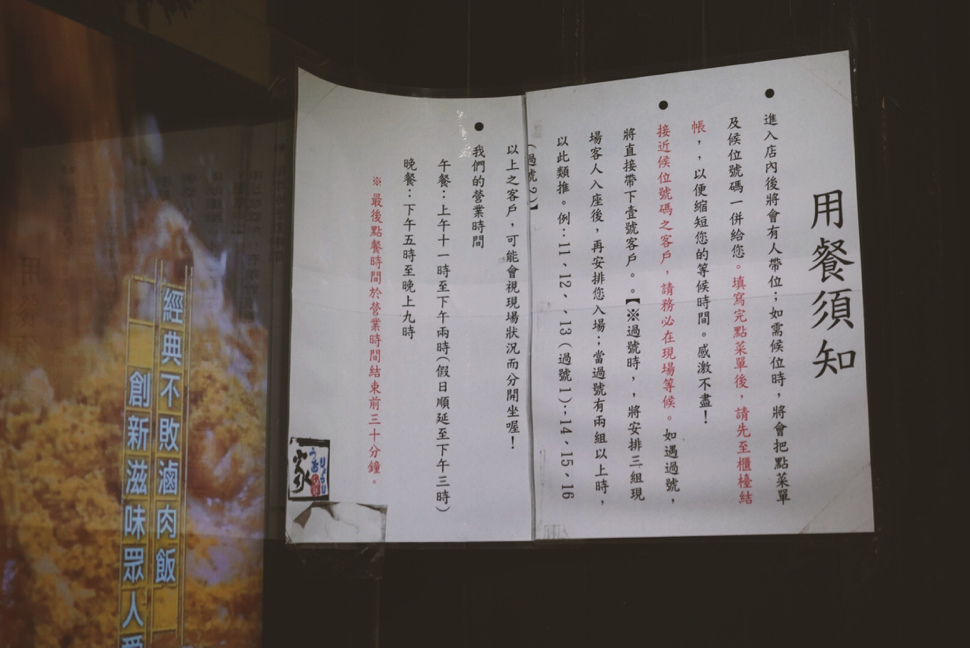 用餐須知
●進入店內後將會有人帶位；如需候位時，將會把點菜單
及候位號碼一併給您。填寫完點菜單後，請先至櫃檯結
帳，，以便縮短您的等候時間。感激不盡！
●接近候位號碼之客戶，請務必在現場等候。如遇過號，
將直接帶下壹號客戶。。【※過號時，，將安排三組現
場客人入座後，再安排您入場；當過號有兩組以上時，
以此類推。例：11、12、、13（過號1）；14、15、16
（過號2）】
以上之客戶，可能會視現場狀況而分開坐喔！
●我們的營業時間
午餐：上午十一時至下午兩時（假日順延至下午三時）
晚餐：下午五時至晚上九時
※最後點餐時間於營業時間結束前三十分鐘。
經典不敗滷肉飯
創新滋味眾人愛